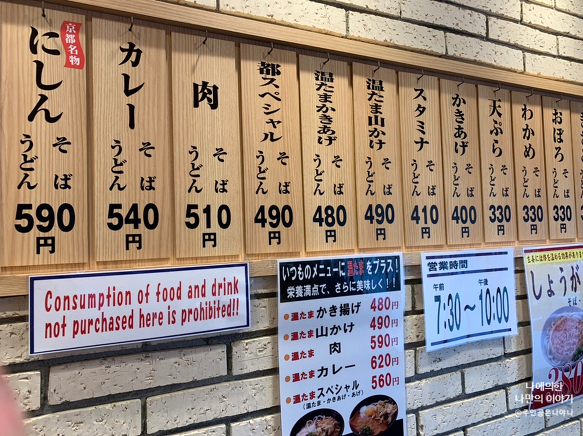 京都名物
にしん
そば
うどん
590
円
カレー
そば
うどん
540
円
肉
そば
うどん
510
円
都スペシャル
そば
うどん
490
円
温たまかきあげ
そば
うどん
480
円
温たま山かけ
そば
うどん
490
円
スタミナ
そば
うどん
410
円
かきあげ
そば
うどん
400
円
天ぷら
そば
うどん
330
円
わかめ
そば
うどん
330
円
おぼろ
そば
うどん
330
円
Consumption of food and drink
not purchased here is prohibited!!
いつものメニューに温たまをプラス！
栄養満点で、さらに美味しく！！
温たま かき揚げ 480円
温たま 山かけ 490円
温たま 肉 590円
温たま カレー 620円
温たま スペシャル 560円
(温たま・かきあげ・あげ)
営業時間
午前 午後
7:30～10:00
しょうが
350
나에의한
나만의 이야기